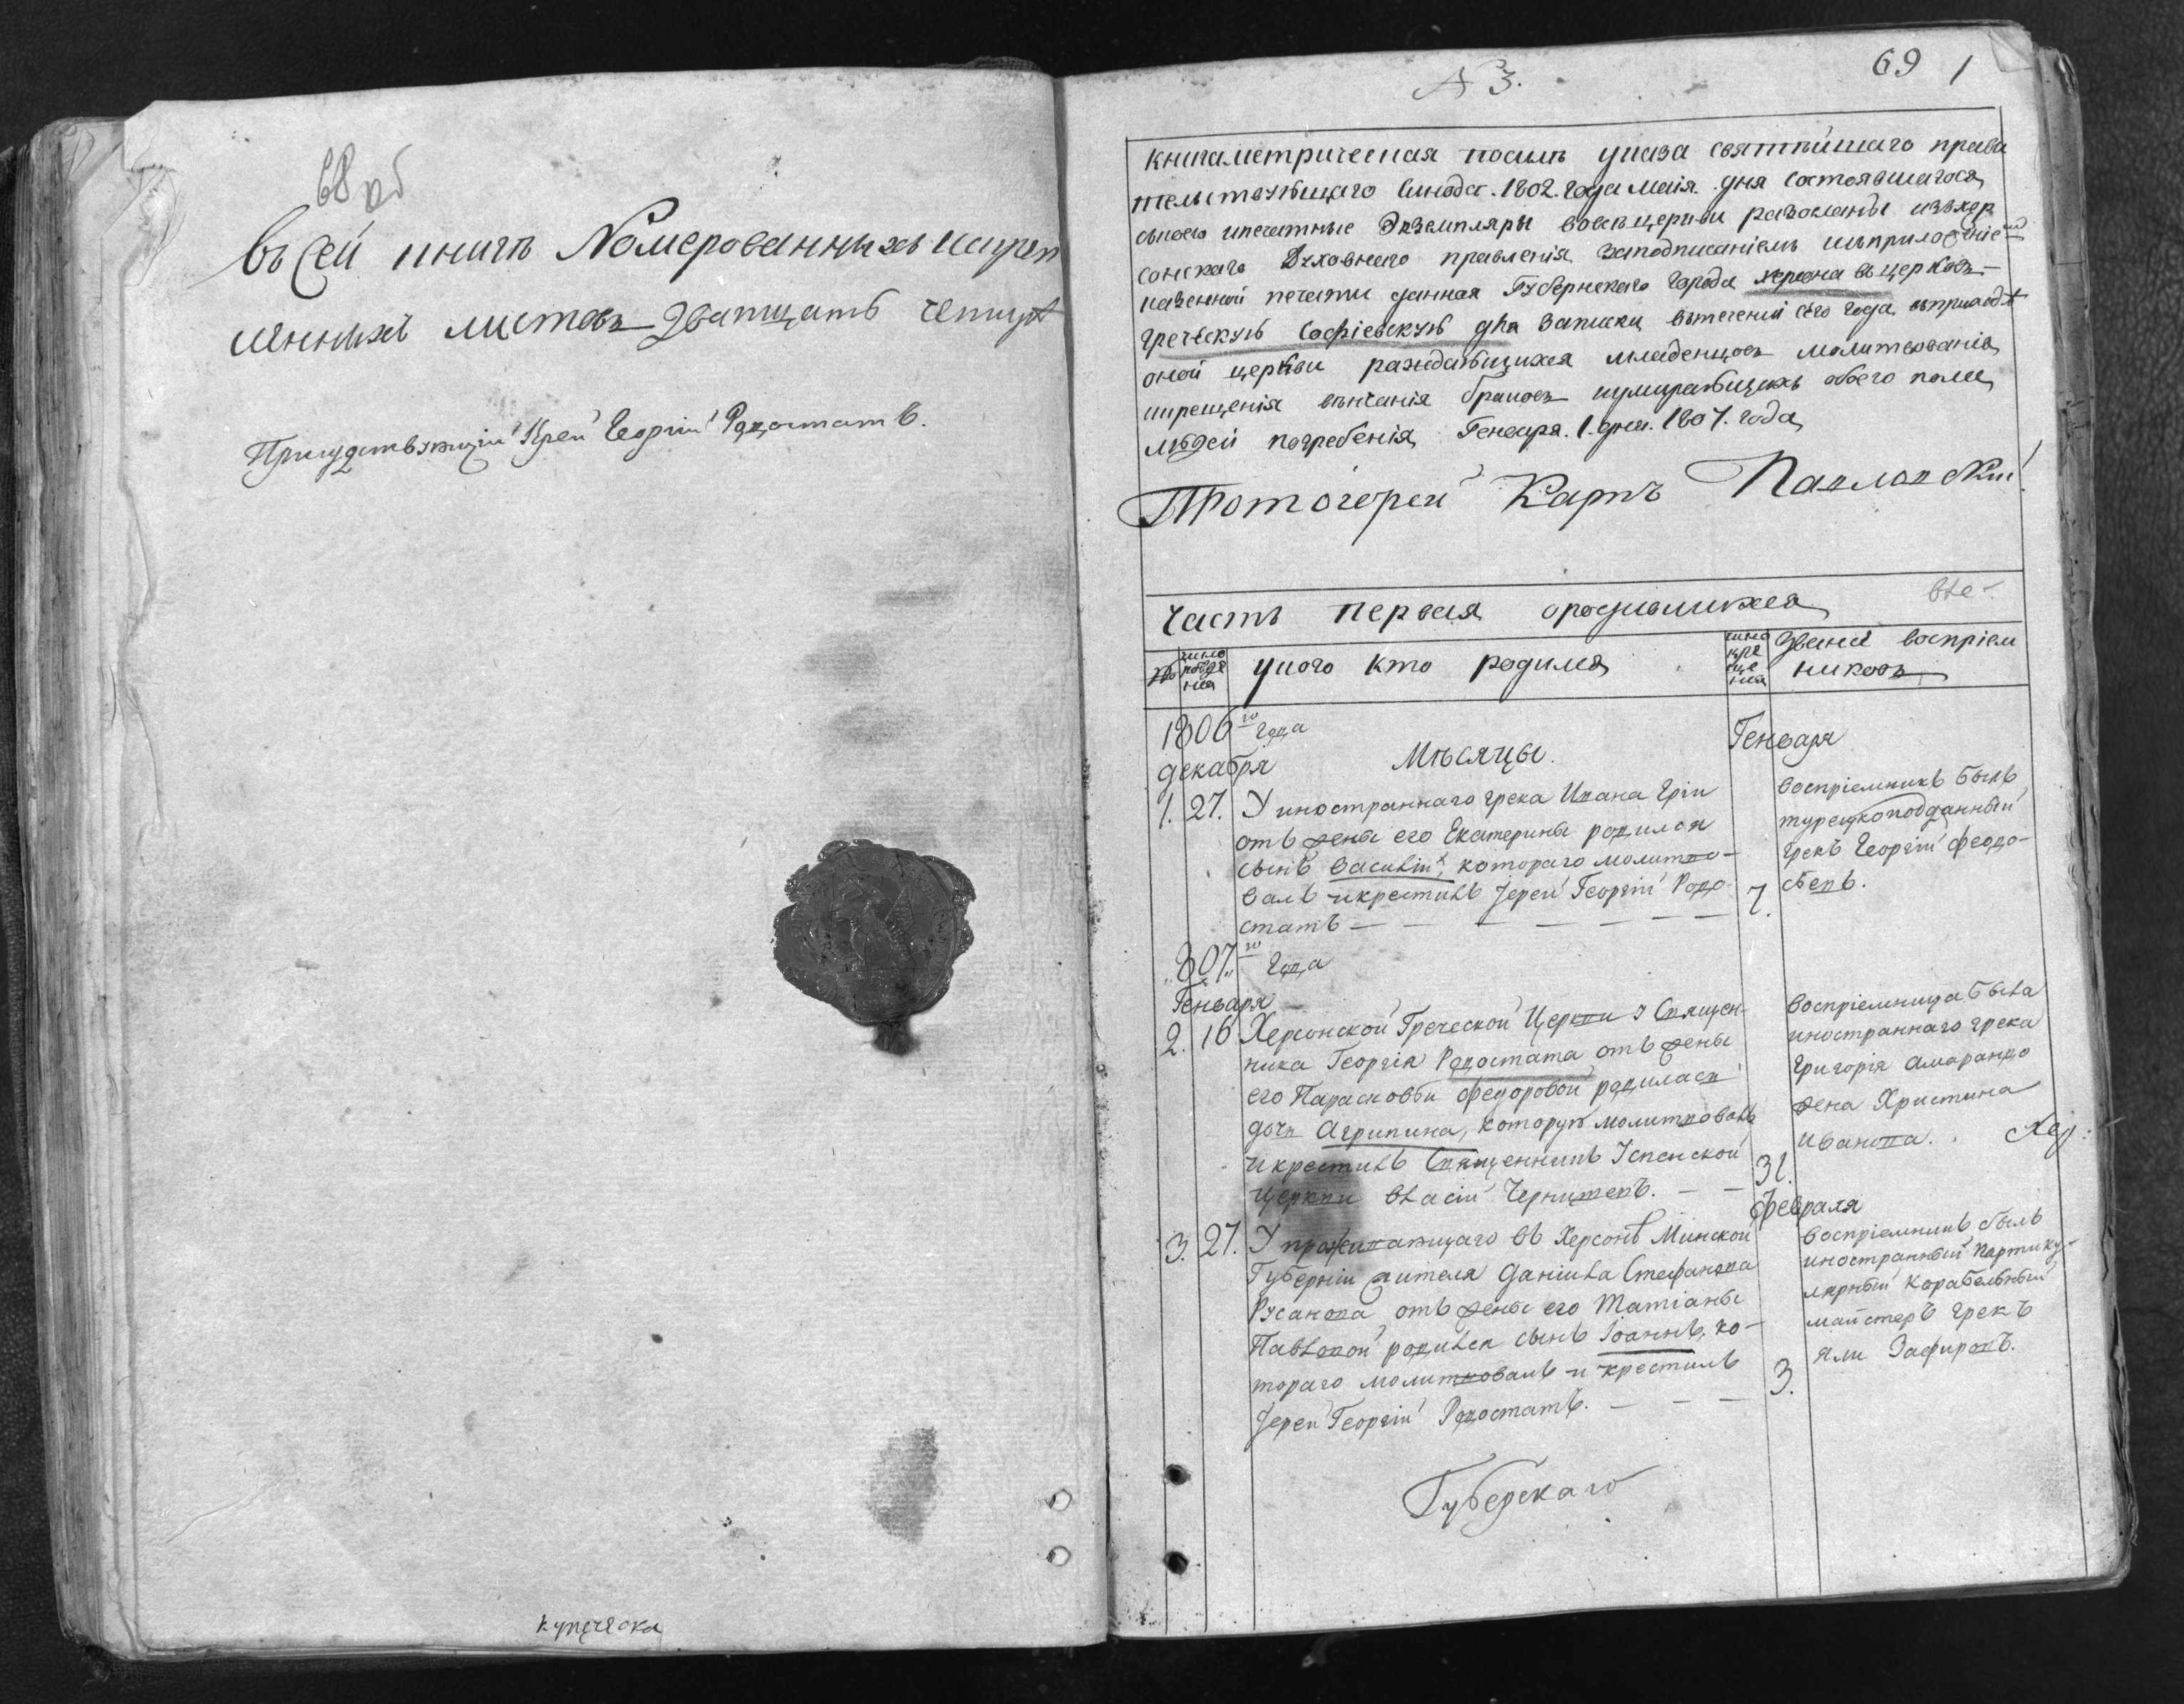 68 об
Въ сей книгѣ Номерованныхъ искреп
ленныхъ листовъ дватцать четыре
Присудствующій Іерей Георгій Родостатъ.
купеческа
№ 3.
69 1
книга метрическая посилѣ указа святѣйшаго прави
тельствующаго Синода 1802. года маія дня состоявшагося,
съ коего ипечатные Экземпляры вовсѣ церкви разосланы изъ хер
сонскаго духовнаго правленія, заподписаніемъ исъприложеніемъ
казенной печати данная Губернскаго города херсона въ церковь
греческую Софіевскую для записки втеченіи сего года въприходѣ
оной церкви раждающихся младенцовъ молитвованія,
икрещенія вѣнчанія браковъ иумирающихъ обоего пола
людей погребенія, Генваря. 1. дня. 1807. года,
Протоіерей Карпъ Павловскій
часть первая ородившихся
№ число рожде нія
у кого кто родился
число кре ще нія
званіе воспріем
никовъ
1806го года
декабря
Мѣсяцы.
Генваря
1. 27. У иностраннаго грека Ивана Гріи
отъ жены его Екатерины родился
сынъ Василій, котораго молитво-
валъ икрестилъ Іерей Георгій Родо
статъ
7.
воспріемникъ былъ
турецкоподданный
Грекъ Георгій феодо-
сѣевъ.
807го Года
Генваря
2. 16 Херсонской Греческой Церкви у Священ-
ника Георгія Родостата отъ жены
его Парасковьи Федоровой родилась
дочь Агрипина, которую молитвовалъ
икрестилъ Священникъ Успенской
Церкви Власій Чернишевъ.
31.
воспріемница была
иностраннаго грека
Григорія Амарандо
жена Христина
Иванова.
Хер:
февраля
3. 27. У проживающаго въ Херсонѣ Минской
Губерніи жителя Даніила Стефанова
Русанова, отъ жены его Татіаны
Павловой родился сынъ Іоаннъ, ко-
тораго молитвовалъ и крестилъ
Іерей Георгій Родостатъ.
3.
воспріемникъ былъ
иностранный партику-
лярный корабельный
майстеръ грекъ
Яли Зафировъ.
Губерскаго